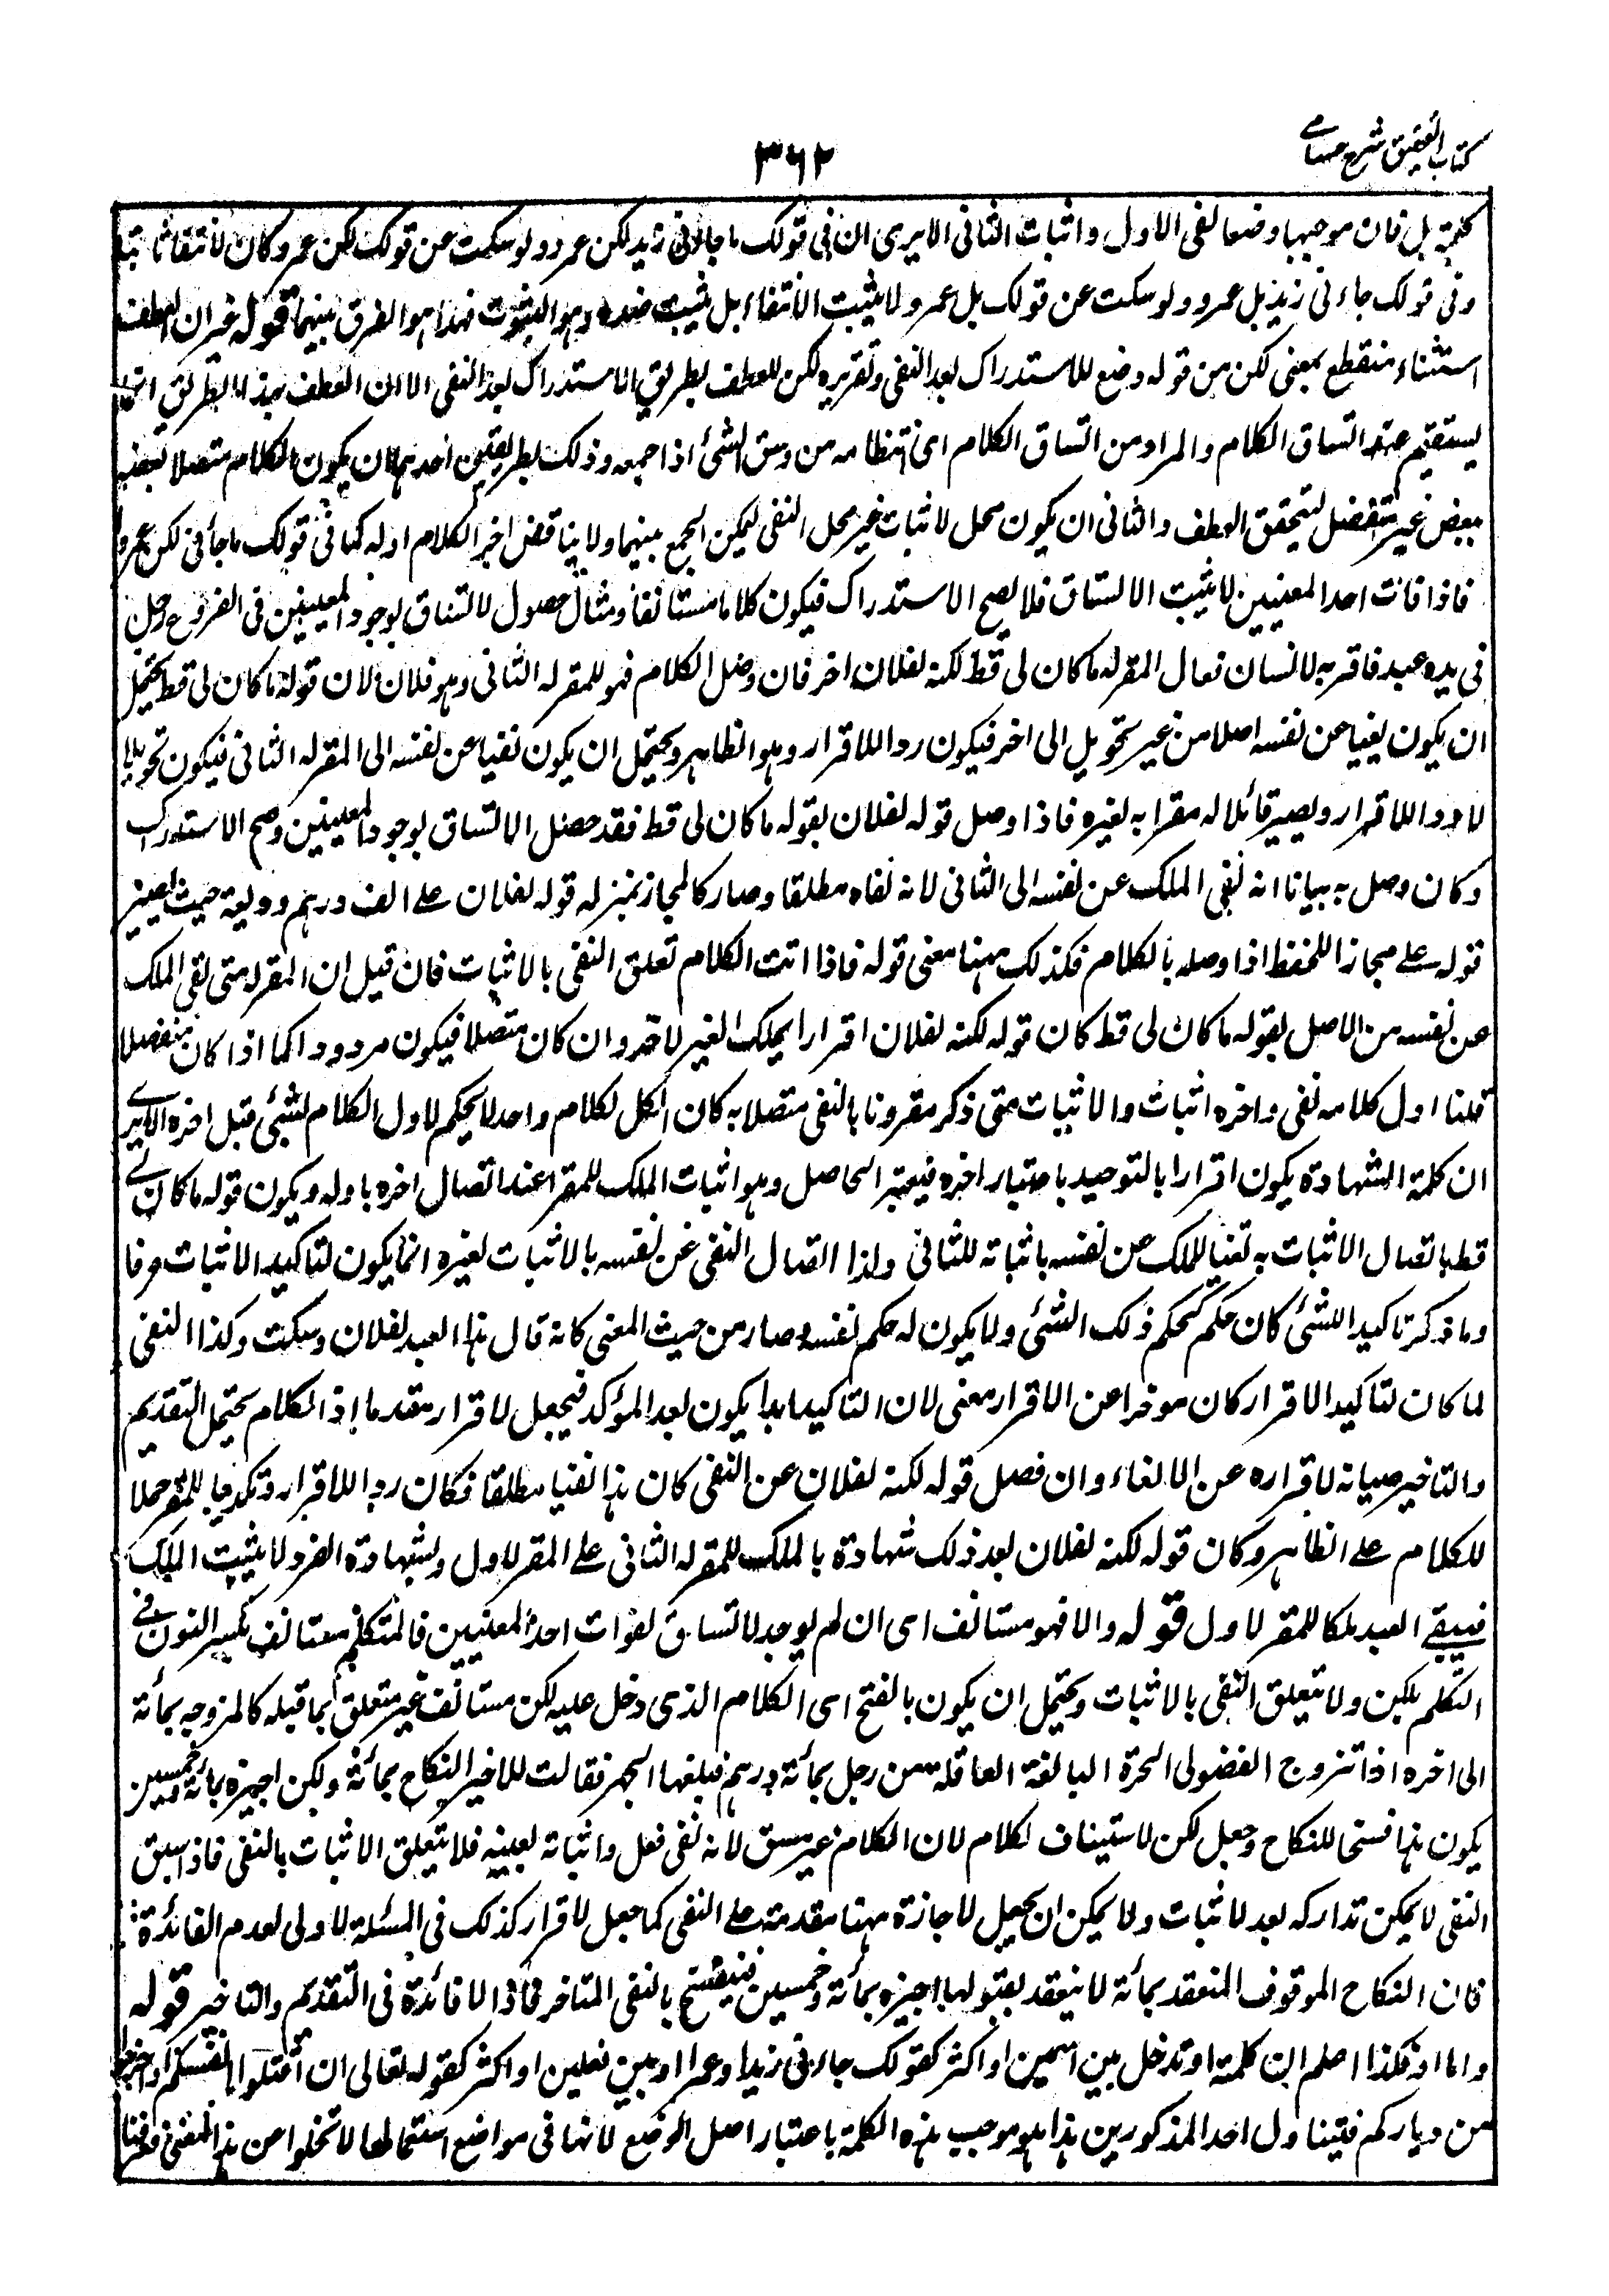 كتاب التحقيق شرح حسامى
٣٦٢
كلمة بل فان موجبها وضعا نفى الاول واثبات الثانى الا يرى ان فى قولك ما جاءنى زيد لكن عمرو ولو سكت عن قولك لكن عمرو كان الانتفاء ثابتا
وفى قولك جاءنى زيد بل عمرو ولو سكت عن قولك بل عمرو لا يثبت الانتفاء بل يثبت ضده وهو الثبوت فهذا هو الفرق بينهما قوله غير ان العطف
استثناء منقطع بمعنى لكن من قوله وضع للاستدراك بعد النفى وتقريره لكن للعطف بطريق الاستدراك بعد النفى الا ان العطف بهذا الطريق انما
يستقيم عند اتساق الكلام والمراد من اتساق الكلام اى انتظامه من وسق الشئ اذا جمعه وذلك بطريقين احدهما ان يكون الكلام متصلا بعضه
ببعض غير منفصل ليتحقق العطف والثانى ان يكون محل الاثبات غير محل النفى ليمكن الجمع بينهما ولا يناقض اخر الكلام اوله كما فى قولك ما جاءنى لكن عمرو
فاذا فات احد المعنيين لا يثبت الاتساق فلا يصح الاستدراك فيكون كلاما مستانفا ومثال حصول الاتساق بوجود المعنيين فى الفروع رجل
فى يده عبد فاقر به لانسان فقال المقر له ما كان لى قط لكنه لفلان اخر فان وصل الكلام فهو للمقر له الثانى وهو فلان لان قوله ما كان لى قط يحتمل
ان يكون نفيا عن نفسه اصلا من غير تحويل الى اخر فيكون ردا للاقرار وهو الظاهر ويحتمل ان يكون نفيا عن نفسه الى المقر له الثانى فيكون تحويلا
لا ردا للاقرار ويصير قائلا له مقرا به لغيره فاذا وصل قوله لفلان بقوله ما كان لى قط فقد حصل الاتساق بوجود المعنيين وصح الاستدراك
وكان وصل به بيانا انه نفى الملك عن نفسه الى الثانى لا انه نفاه مطلقا وصار كالمجاز بمنزلة قوله لفلان على الف درهم وديعة حيث يصير
قوله على مجازا للحفظ اذا وصله بالكلام فكذلك ههنا معنى قوله فاذا اتت الكلام تعلق النفى بالاثبات فان قيل ان المقر له متى نفى الملك
عن نفسه من الاصل بقوله ما كان لى قط كان قوله لكنه لفلان اقرارا بملك الغير لاخر وان كان متصلا فيكون مردودا كما اذا كان منفصلا
قلنا اول كلامه نفى واخره اثبات والاثبات متى ذكر مقرونا بالنفى متصلا به كان الكل لكلام واحد لا يحكم لاول الكلام لشئ قبل اخره الا يرى
ان كلمة الشهادة يكون اقرارا بالتوحيد باعتبار اخره فيعتبر الحاصل وهو اثبات الملك للمقر عند اتصال اخره باوله ويكون قوله ما كان لى
قط باتصال الاثبات به نفيا للملك عن نفسه باثباته للثانى ولذا اتصال النفى عن نفسه بالاثبات لغيره انما يكون لتاكيد الاثبات عرفا
وما ذكر تاكيدا للشئ كان حكمه كحكم ذلك الشئ ولا يكون له حكم نفسه وصار من حيث المعنى كانه قال هذا العبد لفلان وسكت وكذا النفى
لما كان لتاكيد الاقرار كان موخرا عن الاقرار معنى لان التاكيد ابدا يكون بعد المؤكد فيجعل الاقرار مقدما اذ الكلام يحتمل التقديم
والتاخير صيانة لاقراره عن الالغاء وان فصل قوله لكنه لفلان عن النفى كان هذا نفيا مطلقا فكان ردا للاقرار وتكذيبا للمقر حملا
للكلام على الظاهر وكان قوله لكنه لفلان بعد ذلك شهادة بالملك للمقر له الثانى على المقر الاول وبشهادة الفرد لا يثبت الملك
فيبقى العبد ملكا للمقر الاول قوله والا فهو مستانف اى ان لم يوجد الاتساق لفوات احد المعنيين فالمتكلم مستانف بكسر النون فى
التكلم بلكن ولا تعلق النفى بالاثبات ويحتمل ان يكون بالفتح اى الكلام الذى دخل عليه لكن مستانف غير متعلق بما قبله كالمزوجة بمائة
الى اخره اذا تزوج الفضولى الحرة البالغة العاقلة من رجل بمائة درهم فبلغها الخبر فقالت لا اجيز النكاح بمائة ولكن اجيزه بمائة وخمسين
يكون هذا فسخا للنكاح وجعل لكن لاستيناف الكلام لان الكلام غير متسق لانه نفى فعل واثباته بعينه فلا يتعلق الاثبات بالنفى فاذا سبق
النفى لا يمكن تداركه بعد الاثبات ولا يمكن ان يجعل الاجازة ههنا مقدمة على النفى كما جعل الاقرار كذلك فى المسئلة الاولى لعدم الفائدة
فان النكاح الموقوف المنعقد بمائة لا ينعقد بقولها اجيزه بمائة وخمسين فينفسخ بالنفى المتاخر فاذا لا فائدة فى التقديم والتاخير قوله
واما او فكذا اعلم ان كلمة او تدخل بين اسمين او اكثر كقولك جاءنى زيد او عمرا او بين فعلين او اكثر كقوله تعالى ان اقتلوا انفسكم او اخرجوا
من دياركم فيتناول احد المذكورين هذا هو موجب هذه الكلمة باعتبار اصل الوضع لانها فى مواضع استعمالها لا تخلوا عن هذا المعنى